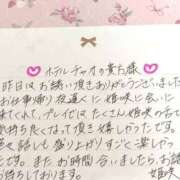 ホテルチャオの貴方様
昨日はお誘い頂きありがとうございました
お仕事帰り夜遅くに姫咲に会いに
来てくれて、プレイではたくさん姫咲で
気持ち良くなって頂き嬉しかったです。
又お話しも盛り上がりすごく楽し
かったです。またお時間合いましたらお誘い
お待ちしております。 姫咲